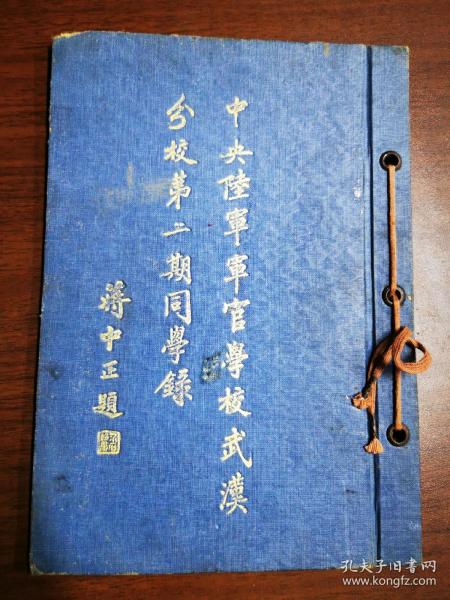 中央陸軍軍官學校武漢
分校第二期同學錄
蔣中正題
孔夫子旧书网
www.kongfz.com